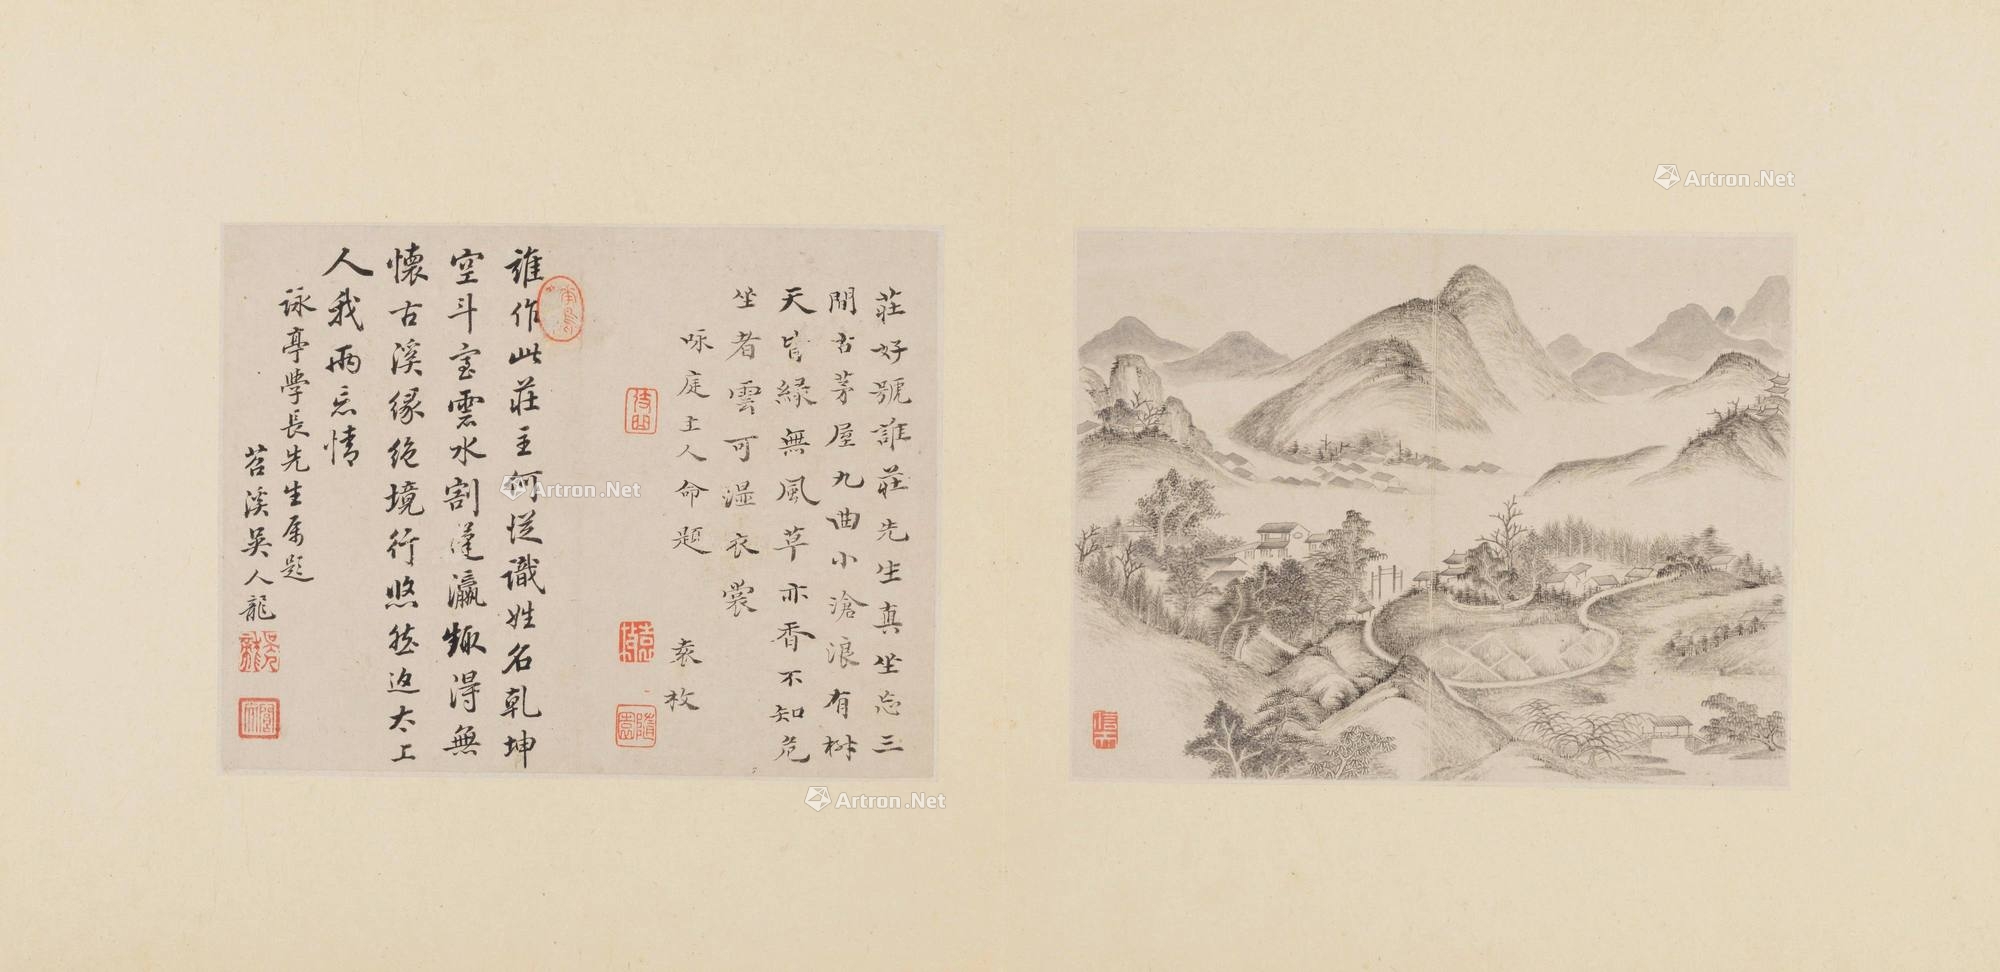 莊好號誰莊先生真坐忘三
間古茅屋九曲小滄浪有樹
天皆綠無風草亦香不知危
坐者雲可濕衣裳
咏庭主人命題
袁枚
誰作此莊主何從識姓名乾坤
空斗室雲水割蓬瀛趣得無
懷古溪緣絶境行悠然返太上
人我兩忘情
詠亭學長先生属題
苕溪吳人龍
Artron.Net
Artron.Net
Artron.Net